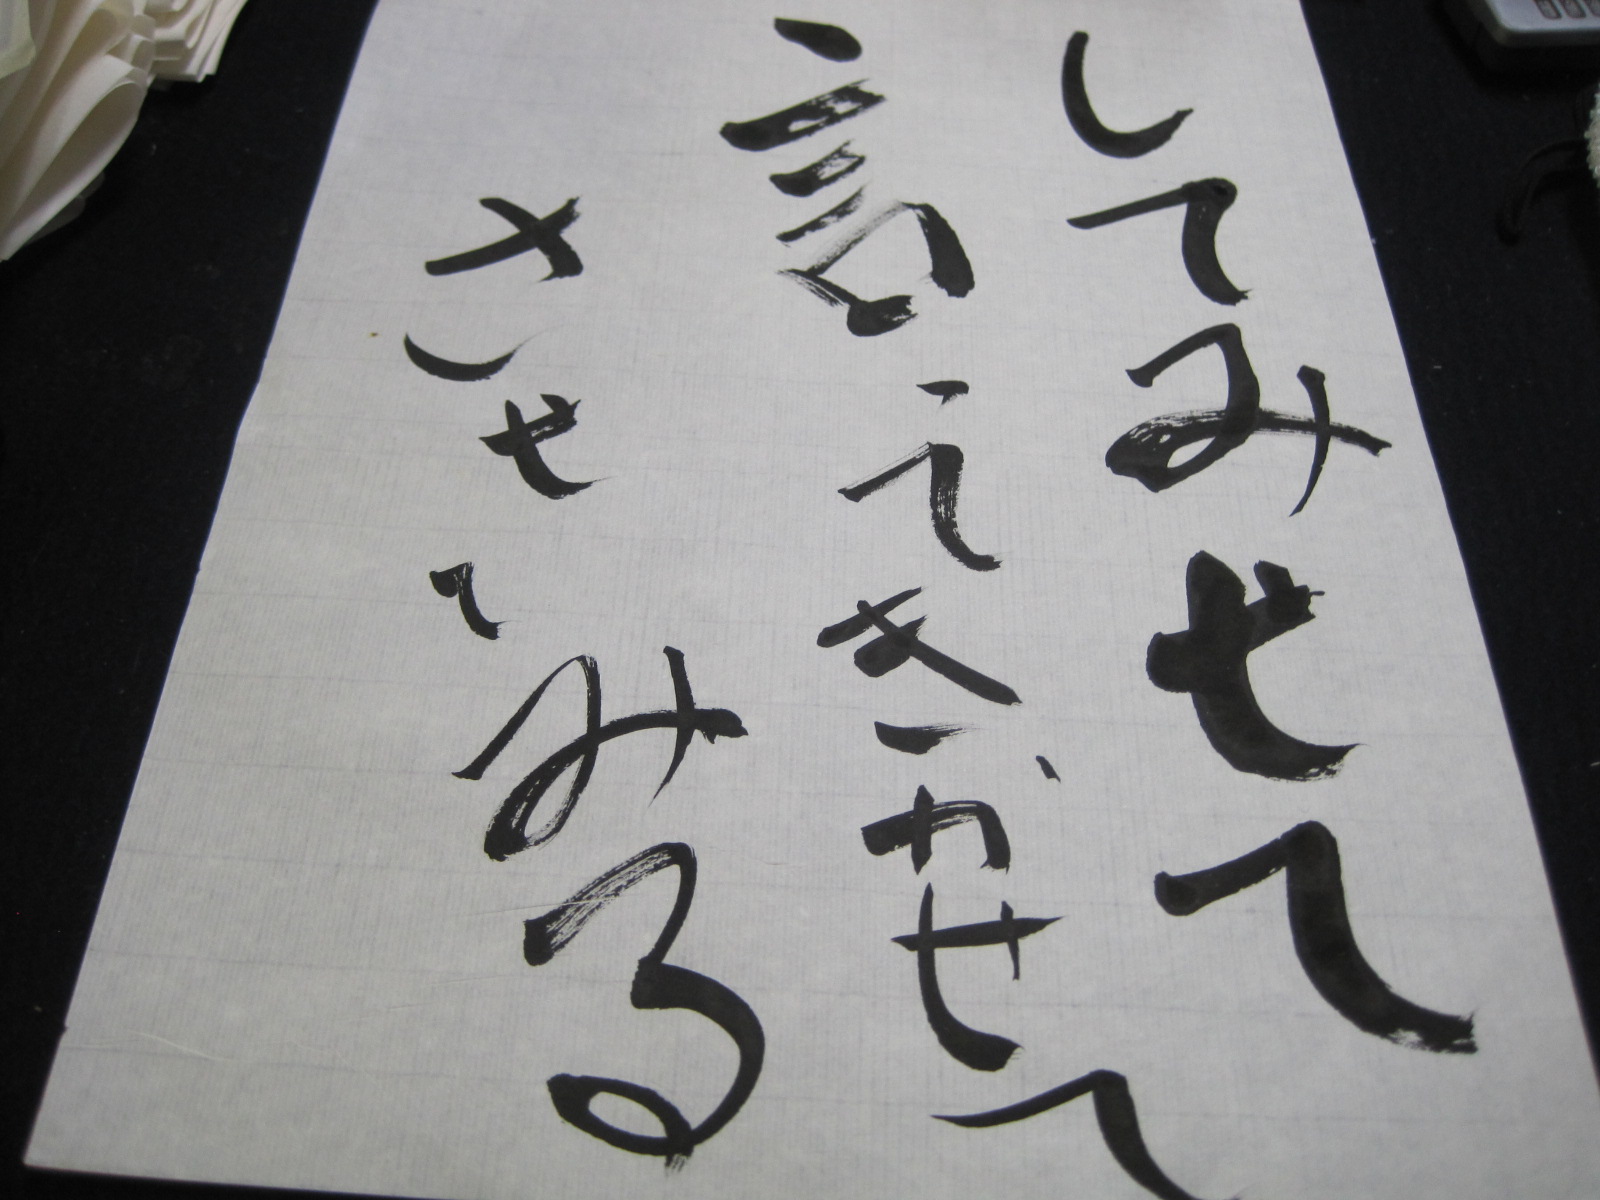 してみせて
言ってきかせて
させてみる